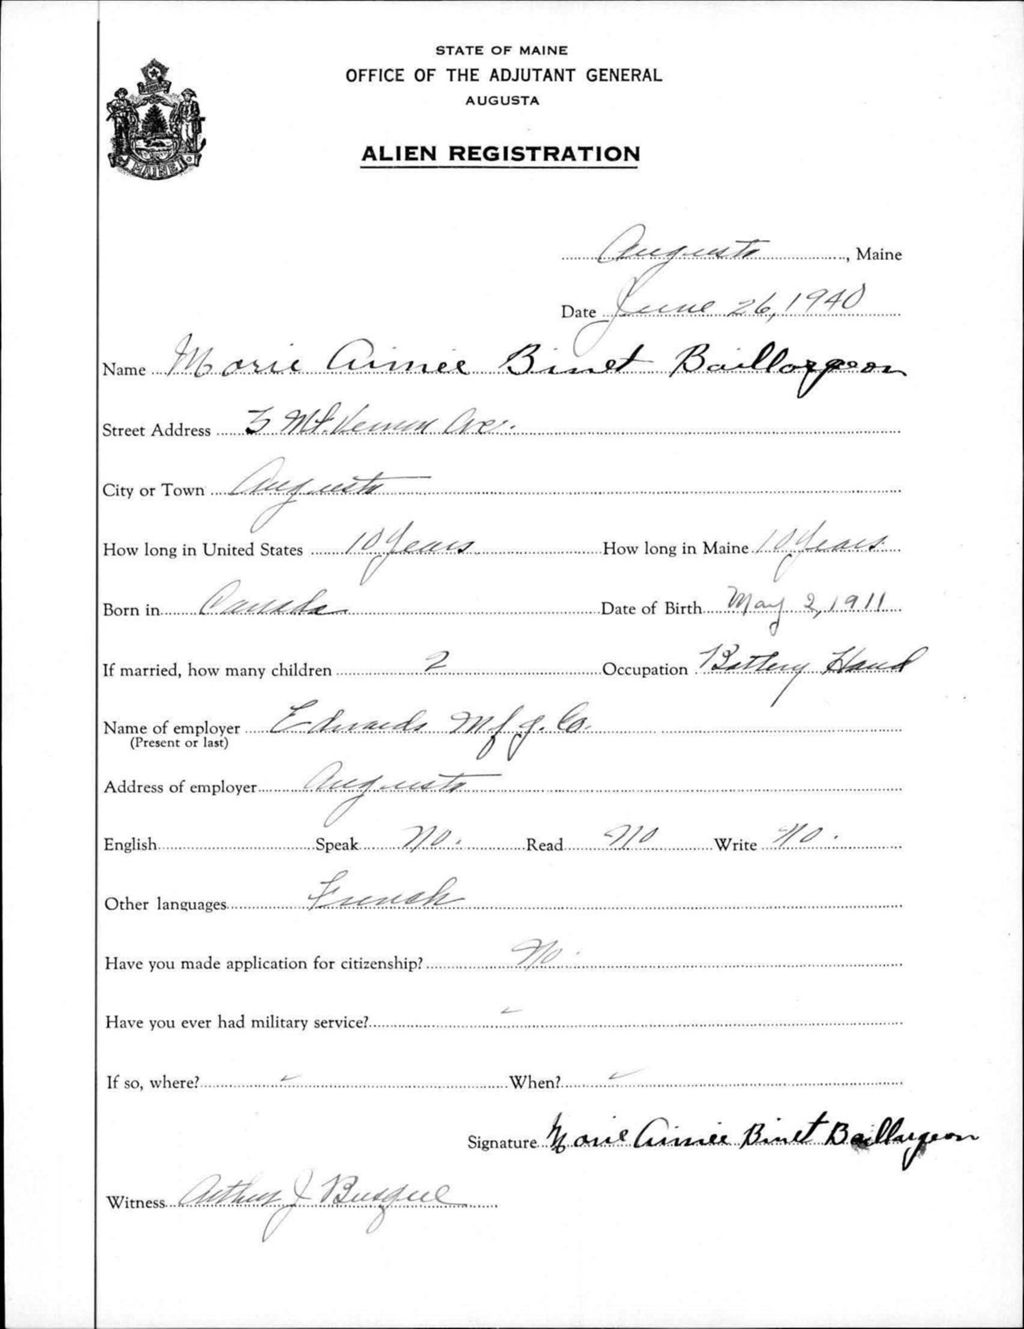 STATE OF MAINE
OFFICE OF THE ADJUTANT GENERAL
AUGUSTA
ALIEN REGISTRATION
MAINE
Augusta, Maine
Date June 26, 1940
Name Marie Aimée Binet Baillargeon
Street Address 3 Mt. Vernon Ave.
City or Town Augusta
How long in United States 10 Years How long in Maine 10 Years
Born in Canada Date of Birth May 2, 1911
If married, how many children 2 Occupation Battery Hand
Name of employer Edwards Mfg. Co.
(Present or last)
Address of employer Augusta
English Speak No. Read No Write No.
Other languages French
Have you made application for citizenship? No.
Have you ever had military service? -
If so, where? - When? -
Signature Marie Aimée Binet Baillargeon
Witness Arthur J